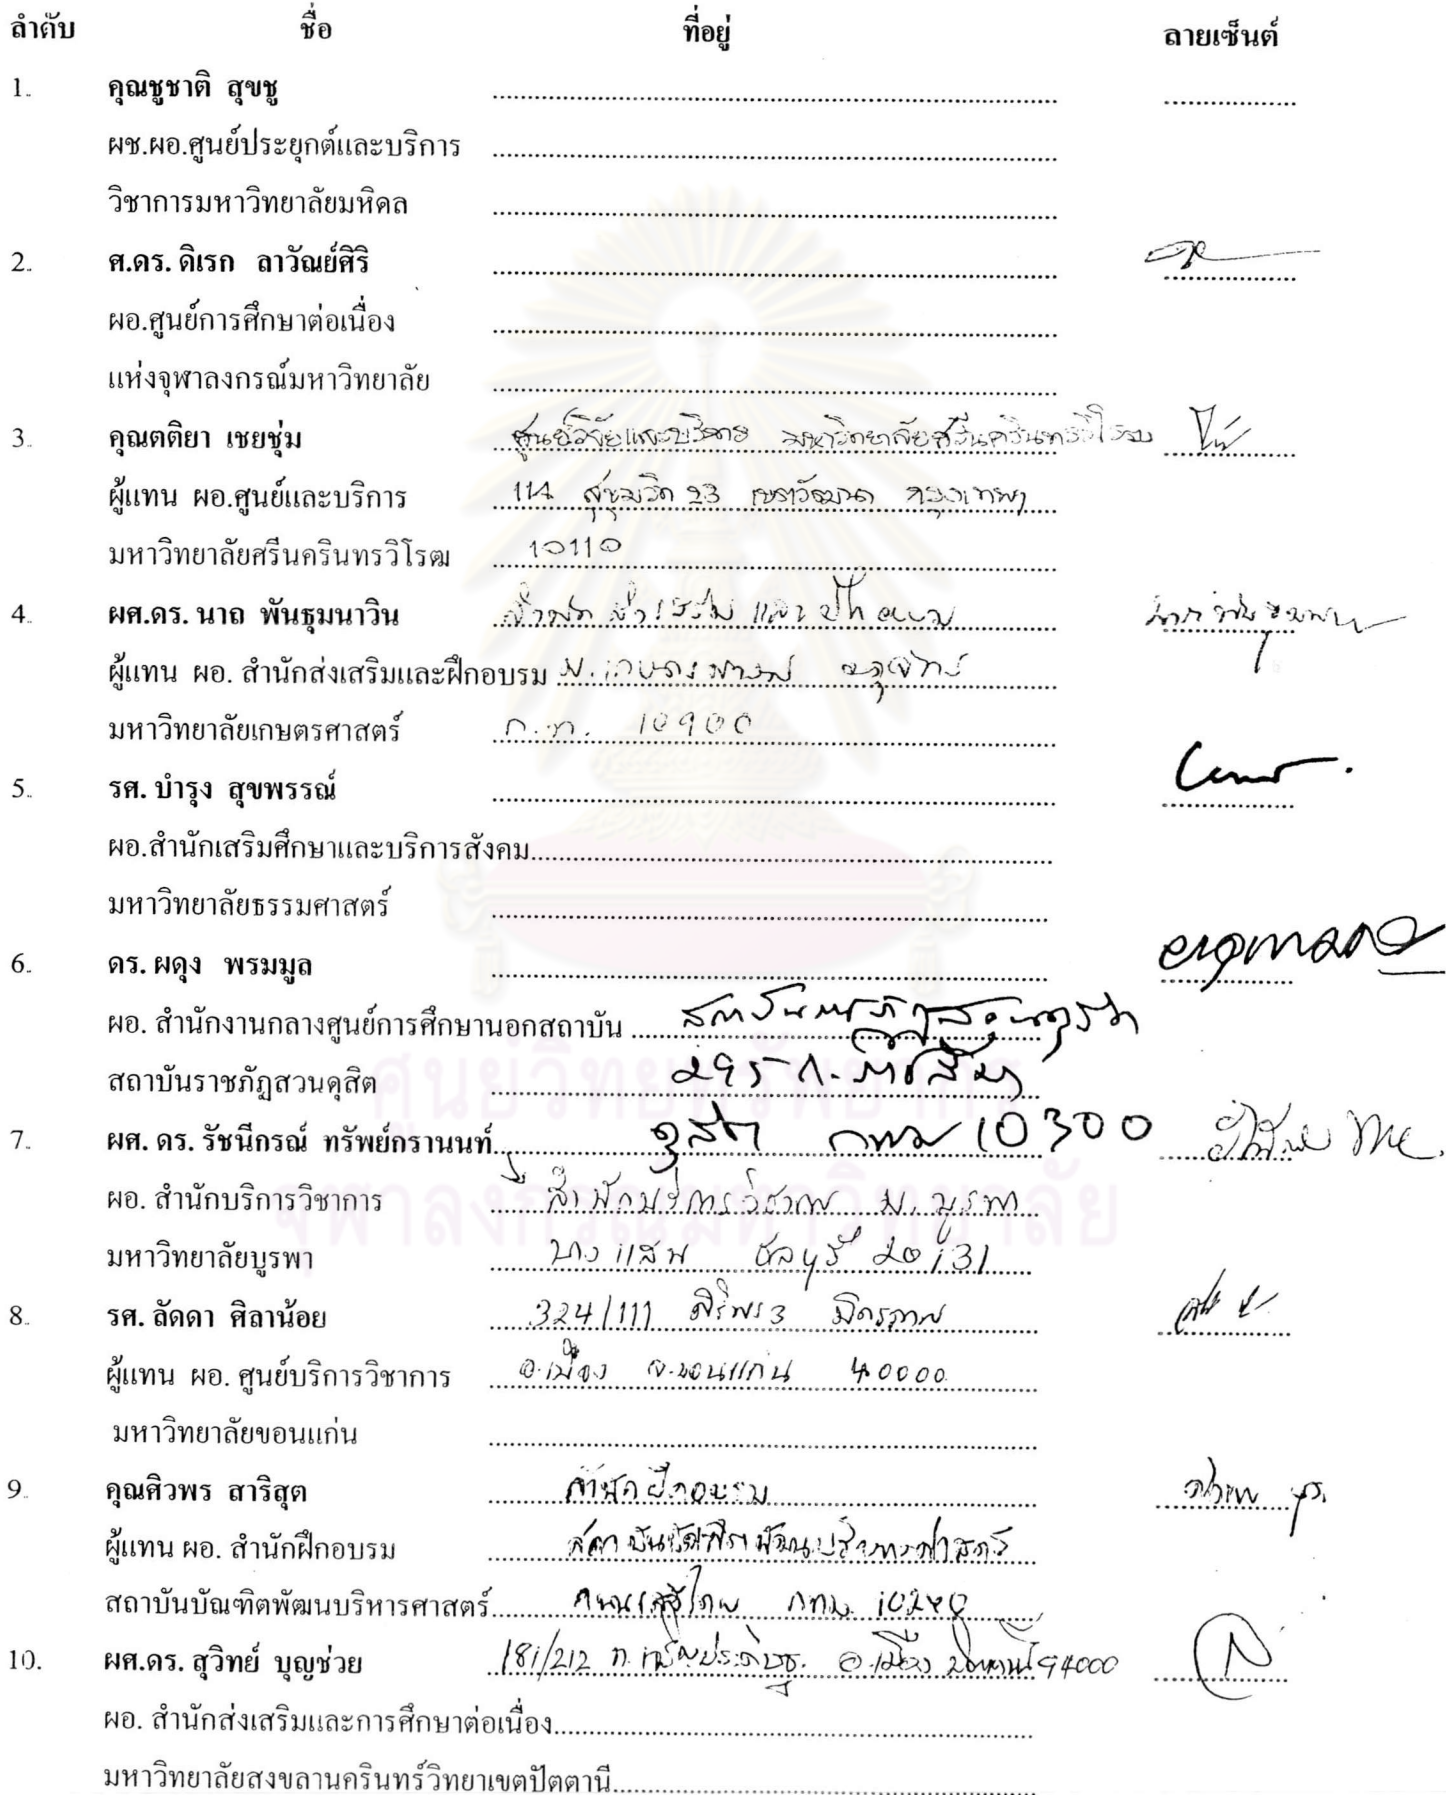 ลำดับ ชื่อ ที่อยู่ ลายเซ็นต์
1. คุณชูชาติ สุขชู
ผช.ผอ.ศูนย์ประยุกต์และบริการ
วิชาการมหาวิทยาลัยมหิดล
2. ศ.ดร. ดิเรก ลาวัณย์ศิริ
ผอ.ศูนย์การศึกษาต่อเนื่อง
แห่งจุฬาลงกรณ์มหาวิทยาลัย
3. คุณตติยา เชยชุ่ม ศูนย์วิจัยและบริการ มหาวิทยาลัยศรีนครินทรวิโรฒ
ผู้แทน ผอ.ศูนย์และบริการ 114 สุขุมวิท 23 เขตวัฒนา กรุงเทพฯ
มหาวิทยาลัยศรีนครินทรวิโรฒ 10110
4. ผศ.ดร. นาถ พันธุมนาวิน สำนักส่งเสริม และฝึกอบรม
ผู้แทน ผอ. สำนักส่งเสริมและฝึกอบรม ม.เกษตรศาสตร์ จตุจักร
มหาวิทยาลัยเกษตรศาสตร์ ก.ท. 10900
5. รศ. บำรุง สุขพรรณ์
ผอ.สำนักเสริมศึกษาและบริการสังคม
มหาวิทยาลัยธรรมศาสตร์
6. ดร. ผดุง พรมมูล
ผอ. สำนักงานกลางศูนย์การศึกษานอกสถาบัน สถาบันราชภัฏสวนดุสิต
สถาบันราชภัฏสวนดุสิต 295 ถ.ราชสีมา
7. ผศ. ดร. รัชนีกรณ์ ทรัพย์กรานนท์ ดุสิต กทม 10300
ผอ. สำนักบริการวิชาการ สำนักบริการวิชาการ ม.บูรพา
มหาวิทยาลัยบูรพา บางแสน ชลบุรี 20131
8. รศ. ลัดดา ศิลาน้อย 324/111 ศิริพร3 มิตรภาพ
ผู้แทน ผอ. ศูนย์บริการวิชาการ อ.เมือง จ.ขอนแก่น 40000
มหาวิทยาลัยขอนแก่น
9. คุณศิวพร สาริสุต สำนักฝึกอบรม
ผู้แทน ผอ. สำนักฝึกอบรม สถาบันบัณฑิตพัฒนบริหารศาสตร์
สถาบันบัณฑิตพัฒนบริหารศาสตร์ ถนนเสรีไทย กทม. 10240
10. ผศ.ดร. สุวิทย์ บุญช่วย 181/212 ถ.เจริญประดิษฐ์ อ.เมือง ปัตตานี 94000
ผอ. สำนักส่งเสริมและการศึกษาต่อเนื่อง
มหาวิทยาลัยสงขลานครินทร์วิทยาเขตปัตตานี
ศูนย์วิทยทรัพยากร
จุฬาลงกรณ์มหาวิทยาลัย